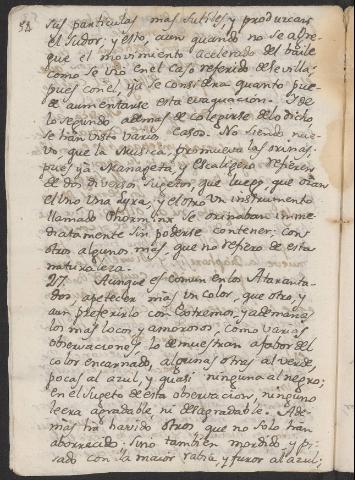 52
sus particulas mas sutiles, y produzcan
el sudor: y esto, aun quando no se agre-
gue el movimiento acelerado del baile
como se vio en el caso referido de Sevilla,
pues con el, ya se considera quanto pue-
de aumentarse esta evaquacion. Y de
lo segundo ademas de colegirse de lo dicho,
se han visto varios casos. No siendo nue-
vo que la Musica, promueva las orinas,
pues ya Manageta y Escaligero refieren
de dos diversos sugetos, que luego, que oian
el uno una Lyra, y el otro un instrumento
llamado Phorminx se orinaban imme-
diatamente sin poderse contener: con
otros algunos mas que no refiero de esta
naturaleza.
27. Aunque es comun en los Ataranta-
dos, apetecer mas un color, que otro, y
aun preferirlo con extremos, y ademanes
los mas locos, y amorosos, como varias
observaciones lo demuestran a fabor del
color encarnado, algunas otras al verde,
pocas al azul, y quasi ninguna al negro;
en el Sugeto de esta observacion, ninguno
le era agradable, ni desagradable. Ade-
mas ha havido otros que no solo han
aborrecido, sino tambien mordido y pi-
sado con la maior rabia, y furor al azul,